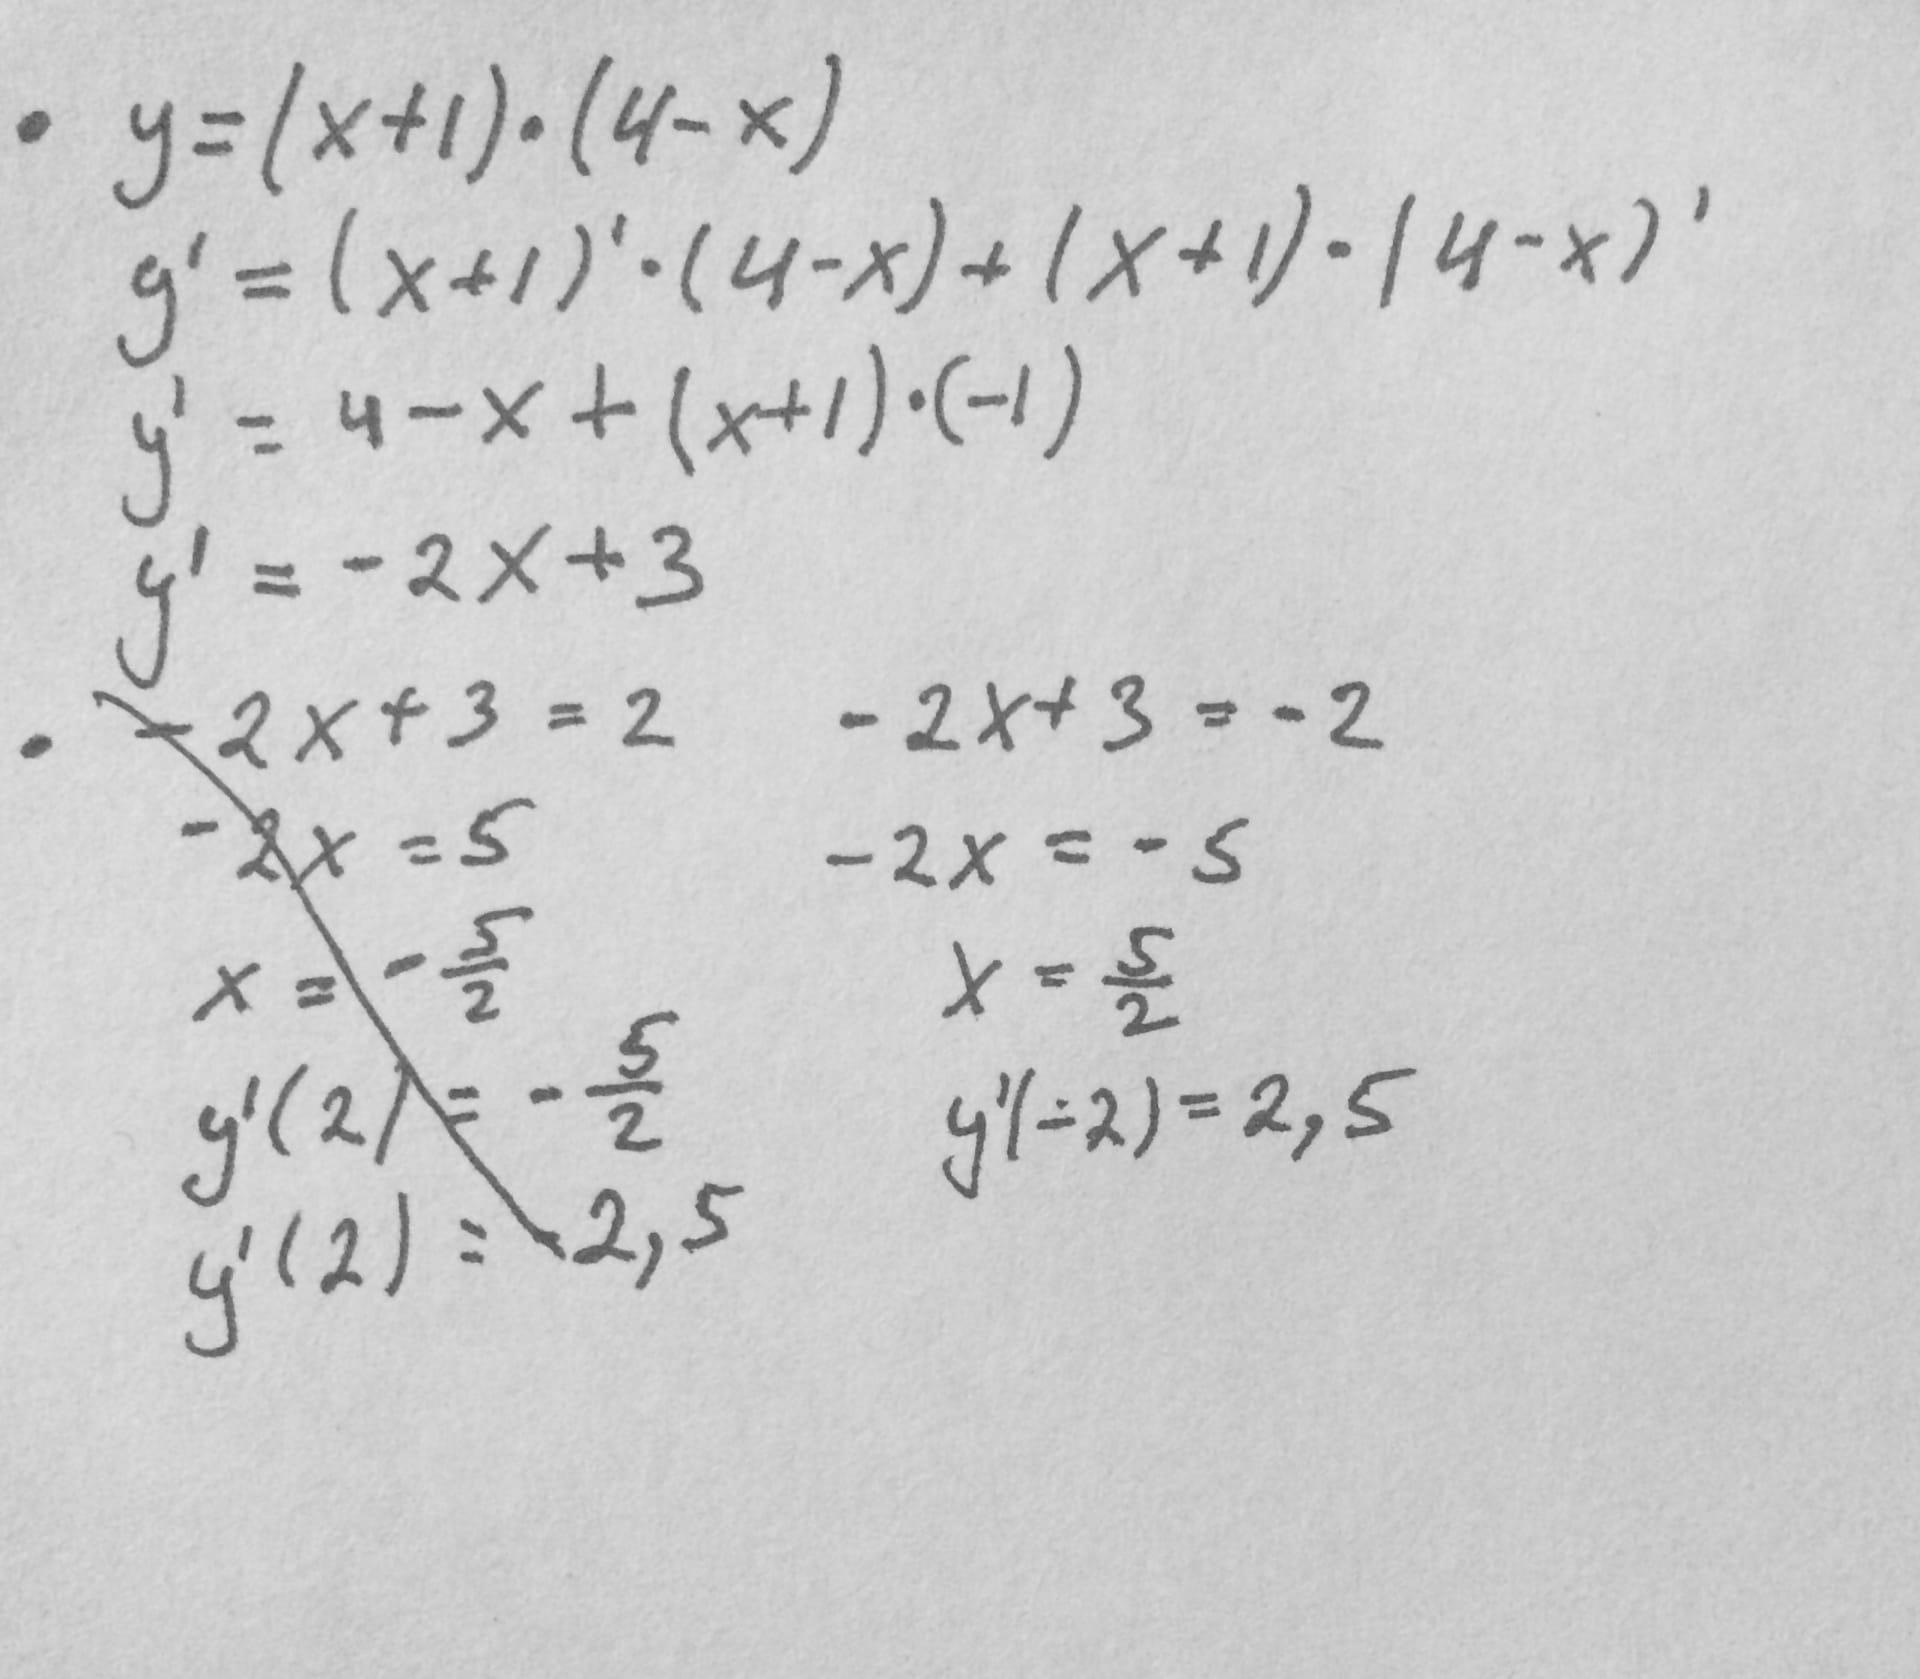 • y=(x+1)·(4-x)
y' = (x+1)'·(4-x)+(x+1)·(4-x)'
y' = 4-x+(x+1)·(-1)
y' = -2x+3
• -2x+3=2
-2x=5
x = -5/2
y'(2) = -5/2
y'(2) = -2,5
-2x+3=-2
-2x=-5
x=5/2
y'(-2)=2,5